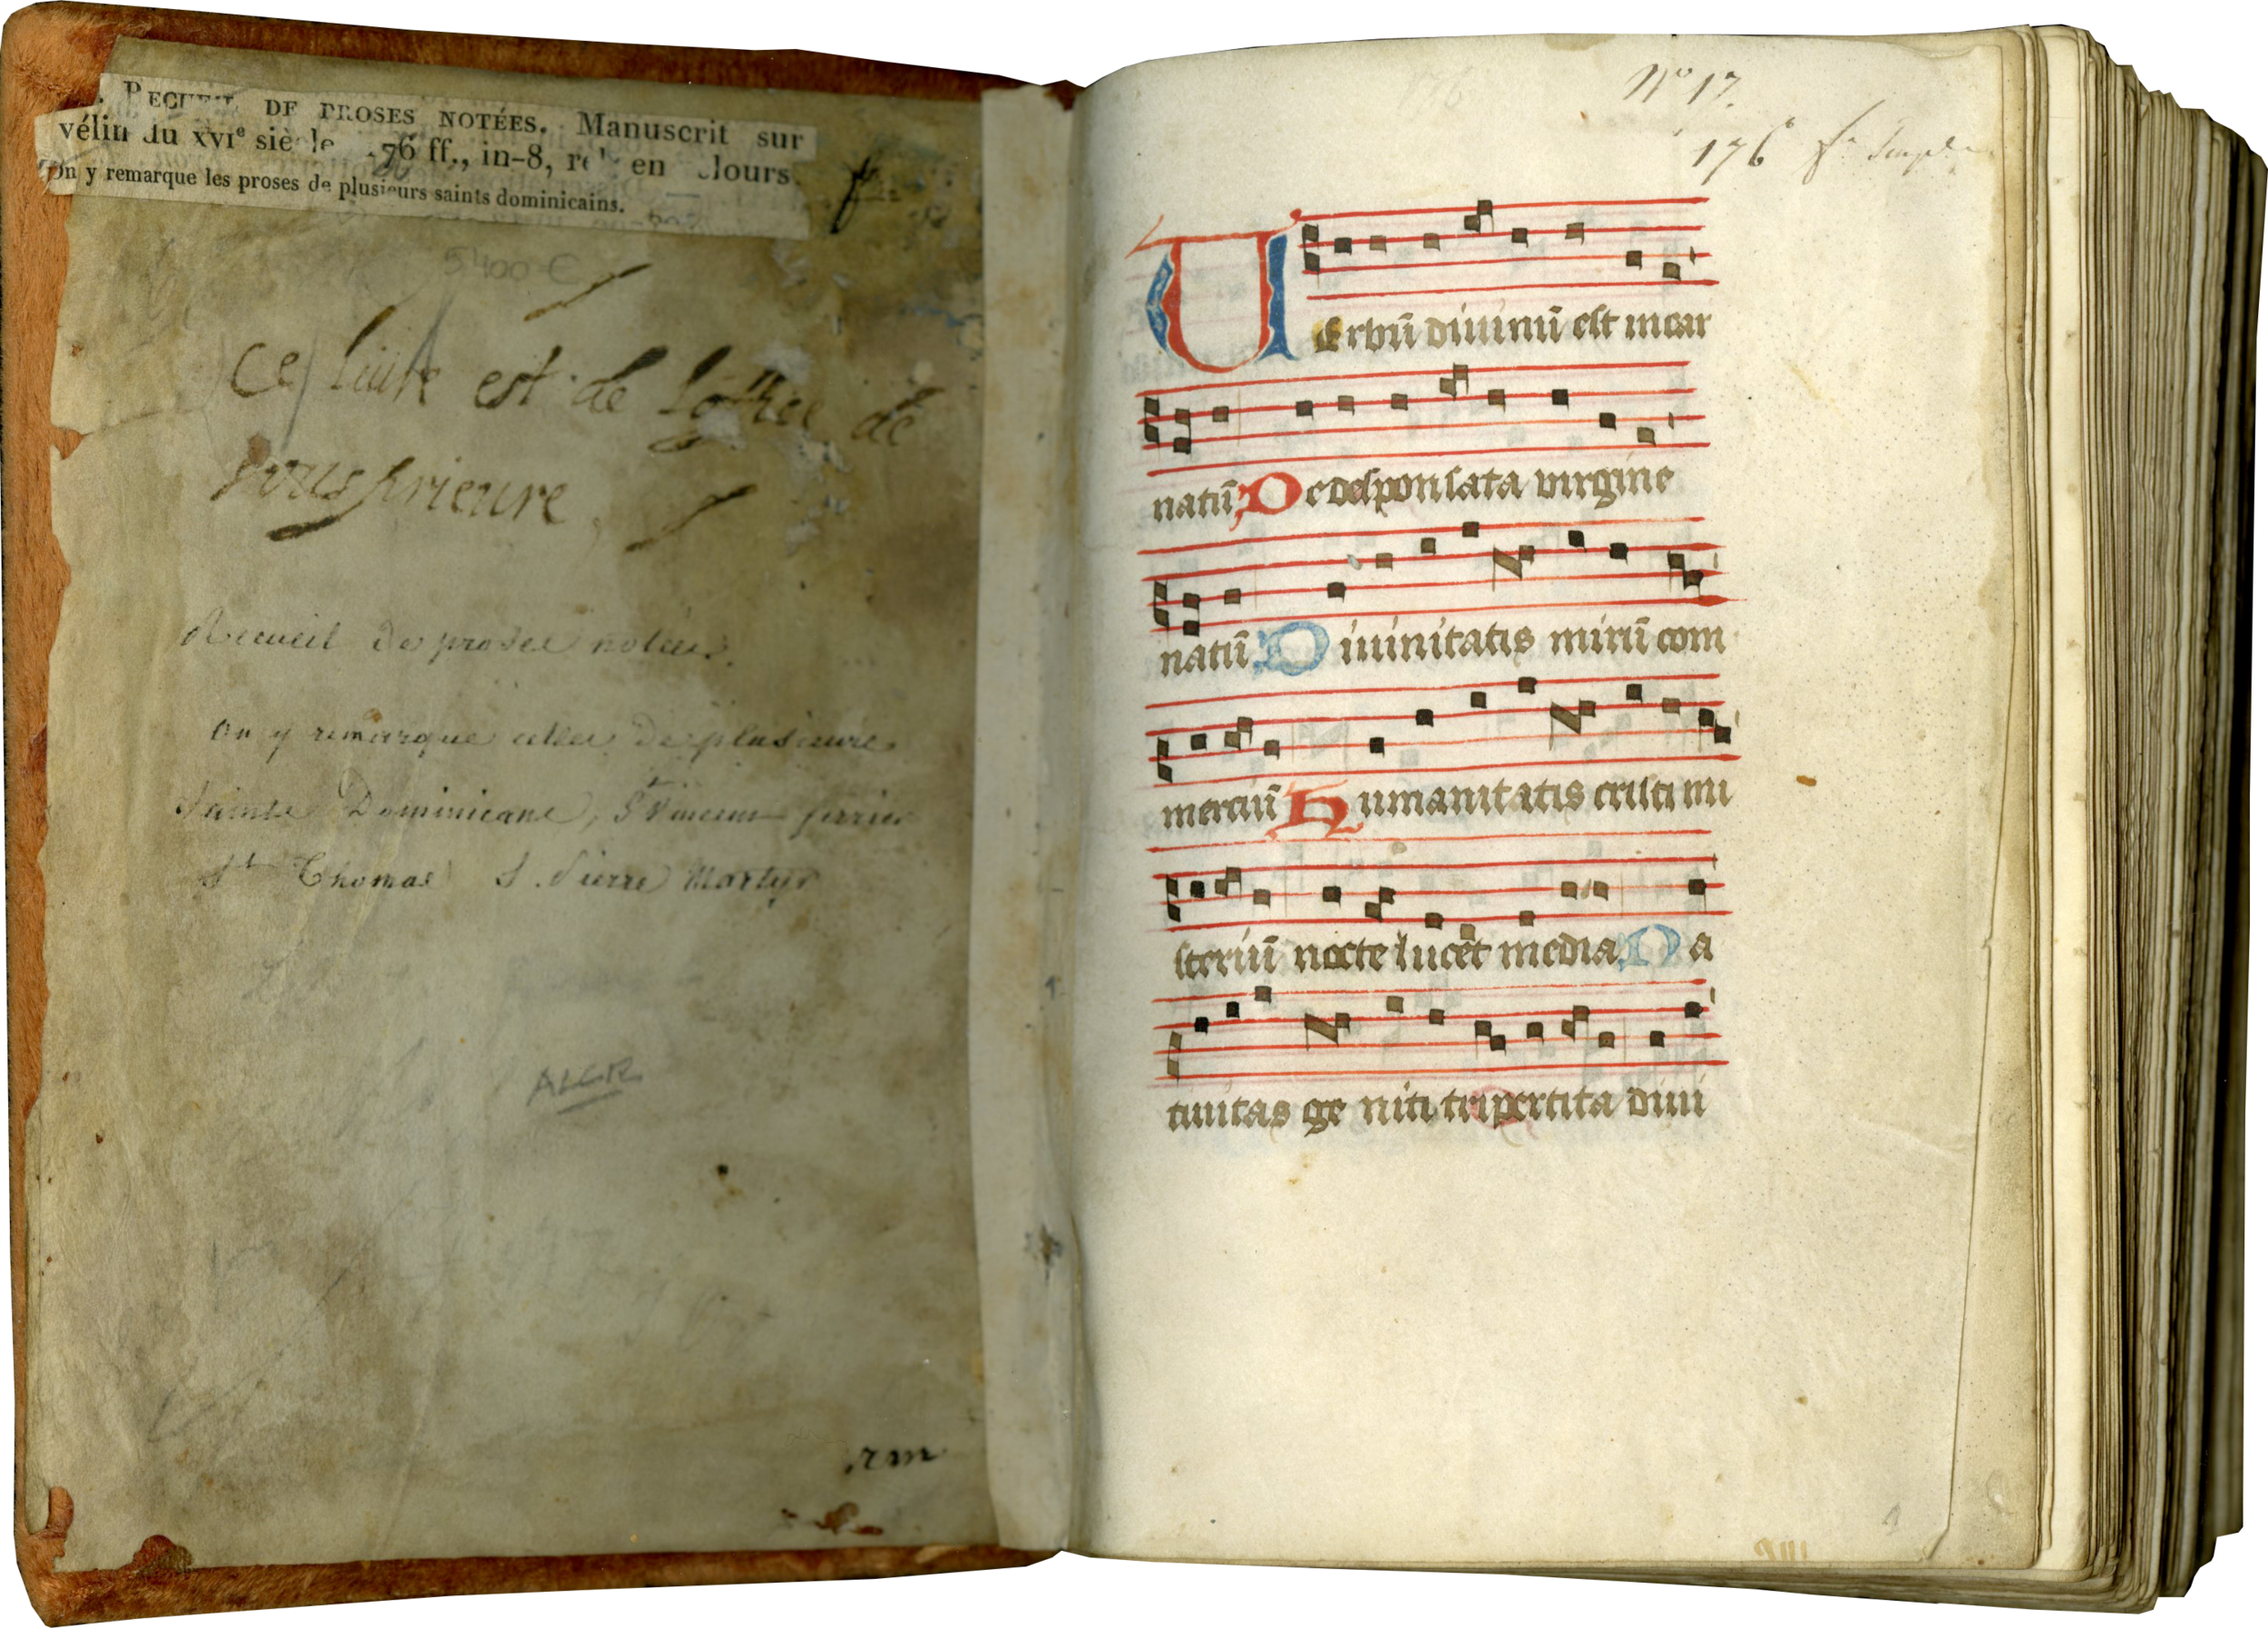 RECUEIL DE PROSES NOTÉES. Manuscrit sur
vélin du XVIe siècle 176 ff., in-8, rel. en velours.
On y remarque les proses de plusieurs saints dominicains.
5400 €
Ce liure est de lofice de
sousprieure
Recueil de proses notées.
On y remarque celles de plusieurs
Saints Dominicans, St Vincent ferrier
St Thomas S. Pierre Martyr
ALGR
rm
176
No 17.
176 f
Uerbū diuinū est incar
natū De desponsata uirgine
natū Diuinitatis mirū com
merciū Humanitatis cristi mi
steriū nocte lucet media Na
tiuitas geniti tripertita diui